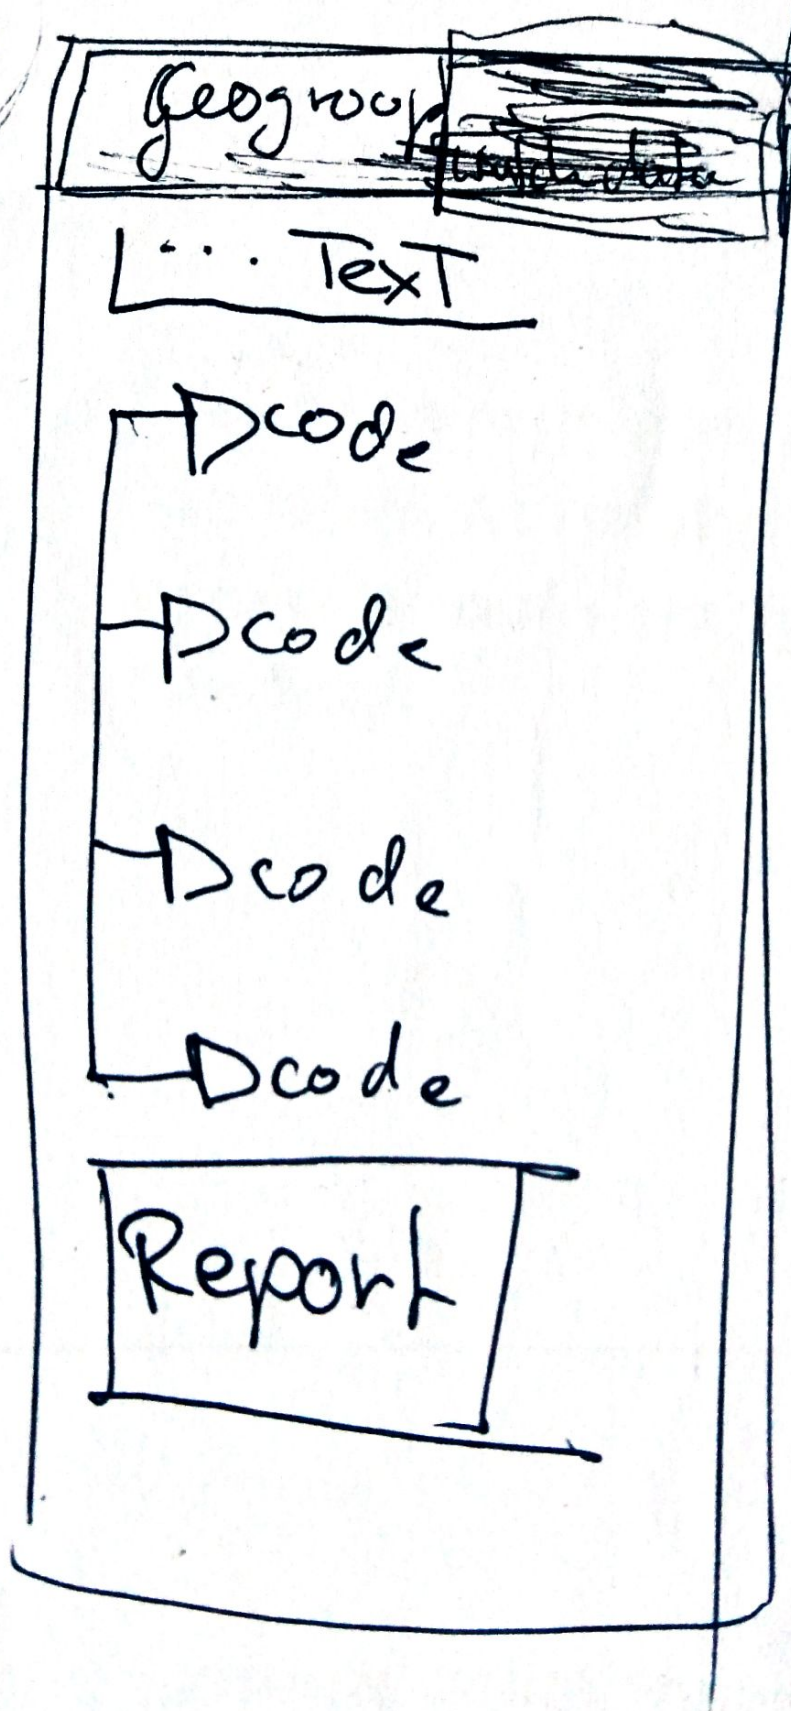 Geogroup
... Text
Dcode
Dcode
Dcode
Dcode
Report